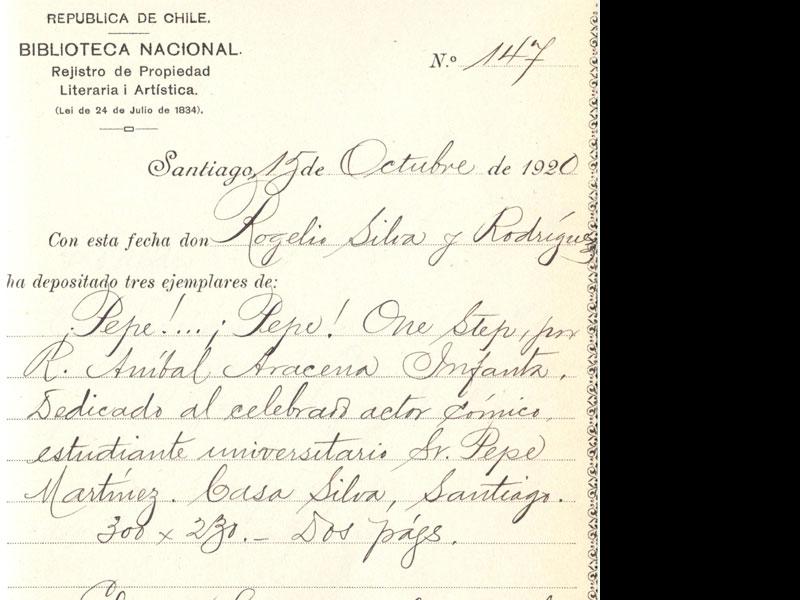 REPUBLICA DE CHILE.
BIBLIOTECA NACIONAL.
Rejistro de Propiedad
Literaria i Artística.
(Lei de 24 de Julio de 1834).
N.º 147
Santiago, 15 de Octubre de 1920
Con esta fecha don Rogelio Silva y Rodríguez
ha depositado tres ejemplares de:
¡Pepe!... ¡Pepe! One Step, por
R. Aníbal Aracena Infanta.
Dedicado al celebrado actor cómico,
estudiante universitario Sr. Pepe
Martínez. Casa Silva, Santiago.
300 x 230.- Dos págs.